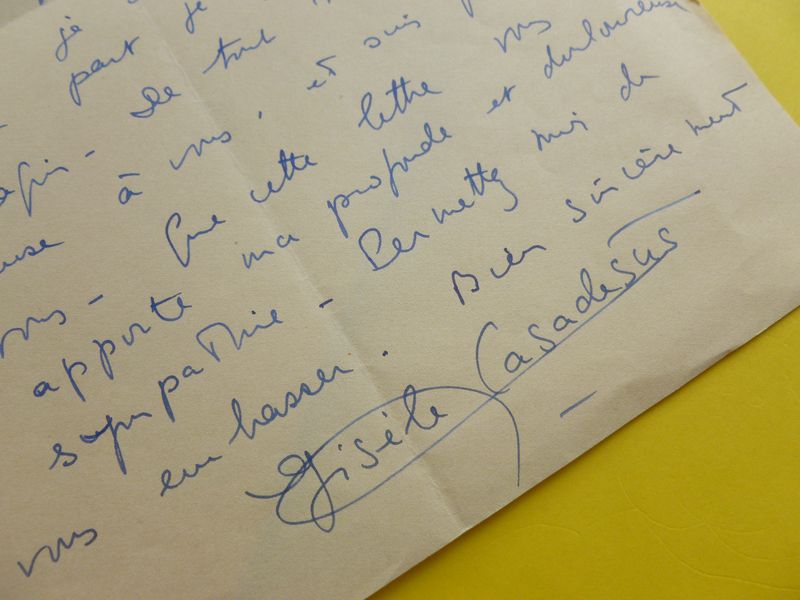 je
part je
De tout
à vous, et suis
Que cette lettre vous
vous - apporte ma profonde et douloureuse
sympathie - Permettez moi de
vous embrasser. Bien sincèrement
Gisèle Casadesus